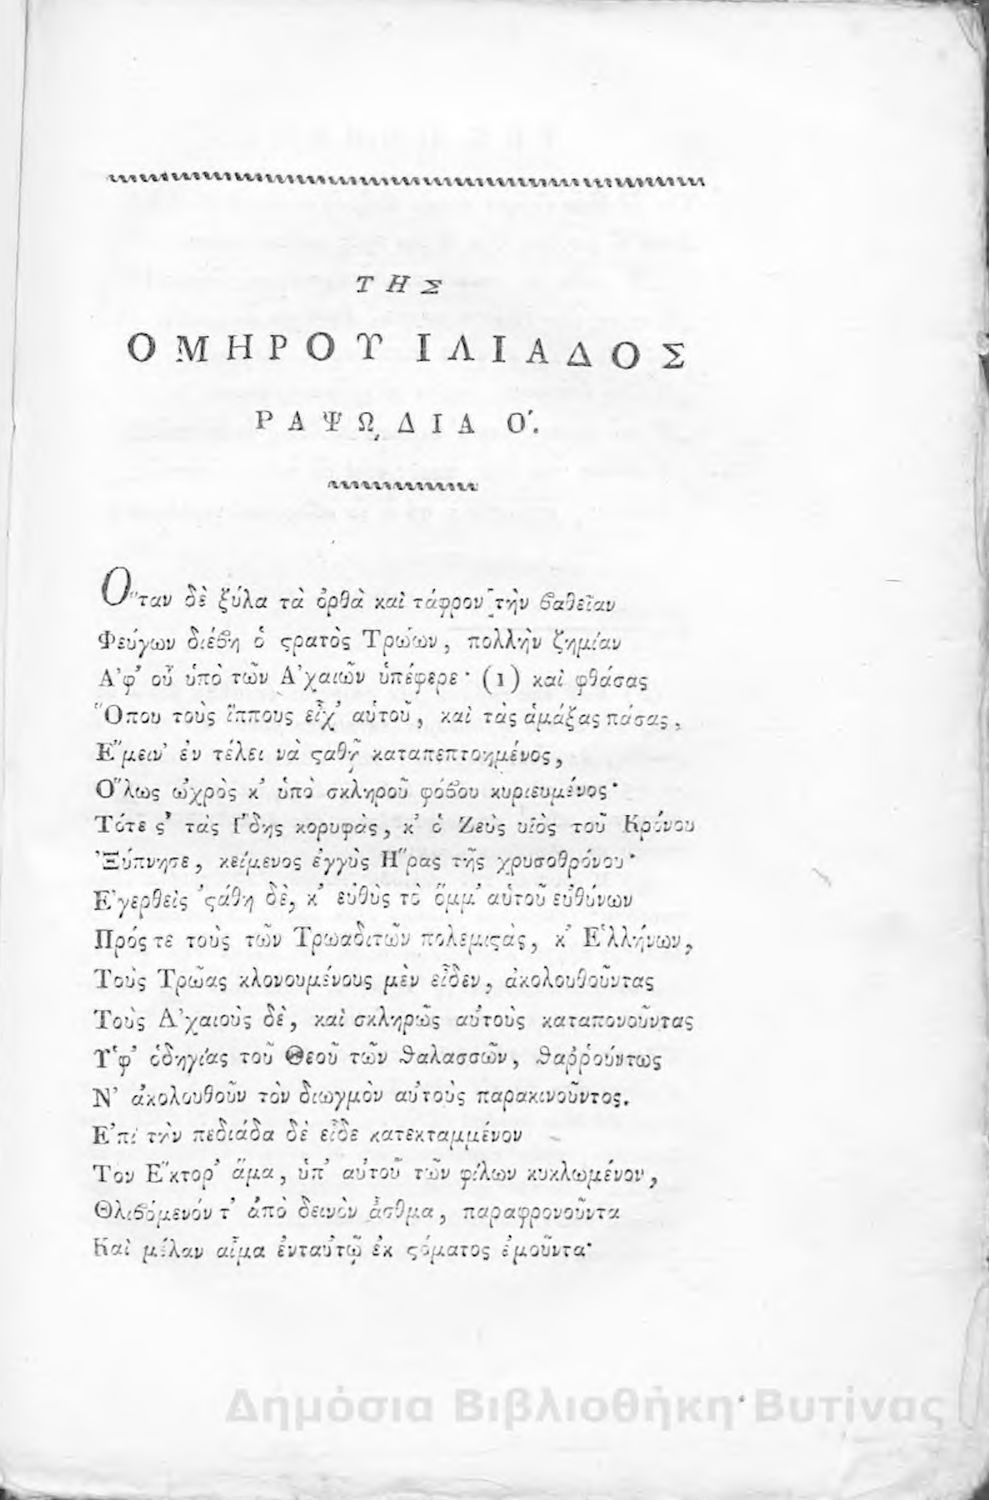 ΤΗΣ
ΟΜΗΡΟΥ ΙΛΙΑΔΟΣ
ΡΑΨῼΔΙΑ Ο΄.
Ὅταν δὲ ξύλα τὰ ὀρθὰ καὶ τάφρον τὴν βαθεῖαν
Φεύγων διέβη ὁ ϛρατὸς Τρώων, πολλὴν ζημίαν
Ἀφ’ οὗ ὑπὸ τῶν Ἀχαιῶν ὑπέφερε· (1) καὶ φθάσας
Ὅπου τοὺς ἵππους εἶχ’ αὑτοῦ, καὶ τὰς ἁμάξας πάσας,
Ἔμειν’ ἐν τέλει νὰ ϛαθῇ καταπεπτοημένος,
Ὅλως ὠχρὸς κ’ ὑπὸ σκληροῦ φόβου κυριευμένος·
Τότε ϛ’ τὰς Ἴδης κορυφὰς, κ’ ὁ Ζεὺς υἱὸς τοῦ Κρόνου
Ἐξύπνησε, κείμενος ἐγγὺς Ἥρας τῆς χρυσοθρόνου·
Ἐγερθεὶς ’ϛάθη δὲ, κ’ εὐθὺς τὸ ὄμμ’ αὑτοῦ εὐθύνων
Πρός τε τοὺς τῶν Τρωαδιτῶν πολεμιϛὰς, κ’ Ἑλλήνων,
Τοὺς Τρῶας κλονουμένους μὲν εἶδεν, ἀκολουθοῦντας
Τοὺς Ἀχαιοὺς δὲ, καὶ σκληρῶς αὐτοὺς καταπονοῦντας
Ὑφ’ ὁδηγίας τοῦ Θεοῦ τῶν θαλασσῶν, θαῤῥούντως
Ν’ ἀκολουθοῦν τὸν διωγμὸν αὐτοὺς παρακινοῦντος.
Ἐπὶ τὴν πεδιάδα δὲ εἶδε κατεκταμμένον
Τὸν Ἕκτορ’ ἅμα, ὑπ’ αὐτοῦ τῶν φίλων κυκλωμένον,
Θλιβόμενόν τ’ ἀπὸ δεινὸν ἆσθμα, παραφρονοῦντα
Καὶ μέλαν αἷμα ἐνταὐτῷ ἐκ ϛόματος ἐμοῦντα·
Δημόσια Βιβλιοθήκη Βυτίνας